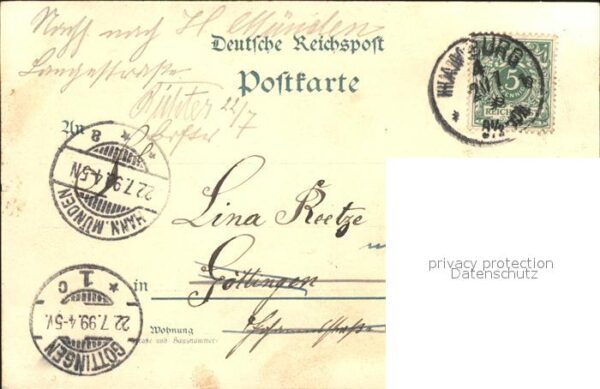 Nach nach H. Münden
Deutsche Reichspost
Langestraße
Postkarte
22/7
An
HAMBURG
4
5
REICHSPOST
HANN. MÜNDEN
22.7.99.4-5N
* 8
Lina Reetze
privacy protection
Datenschutz
in Göttingen
GÖTTINGEN
22.7.99.4-5V.
* 1 C
Wohnung
(Straße und Hausnummer)